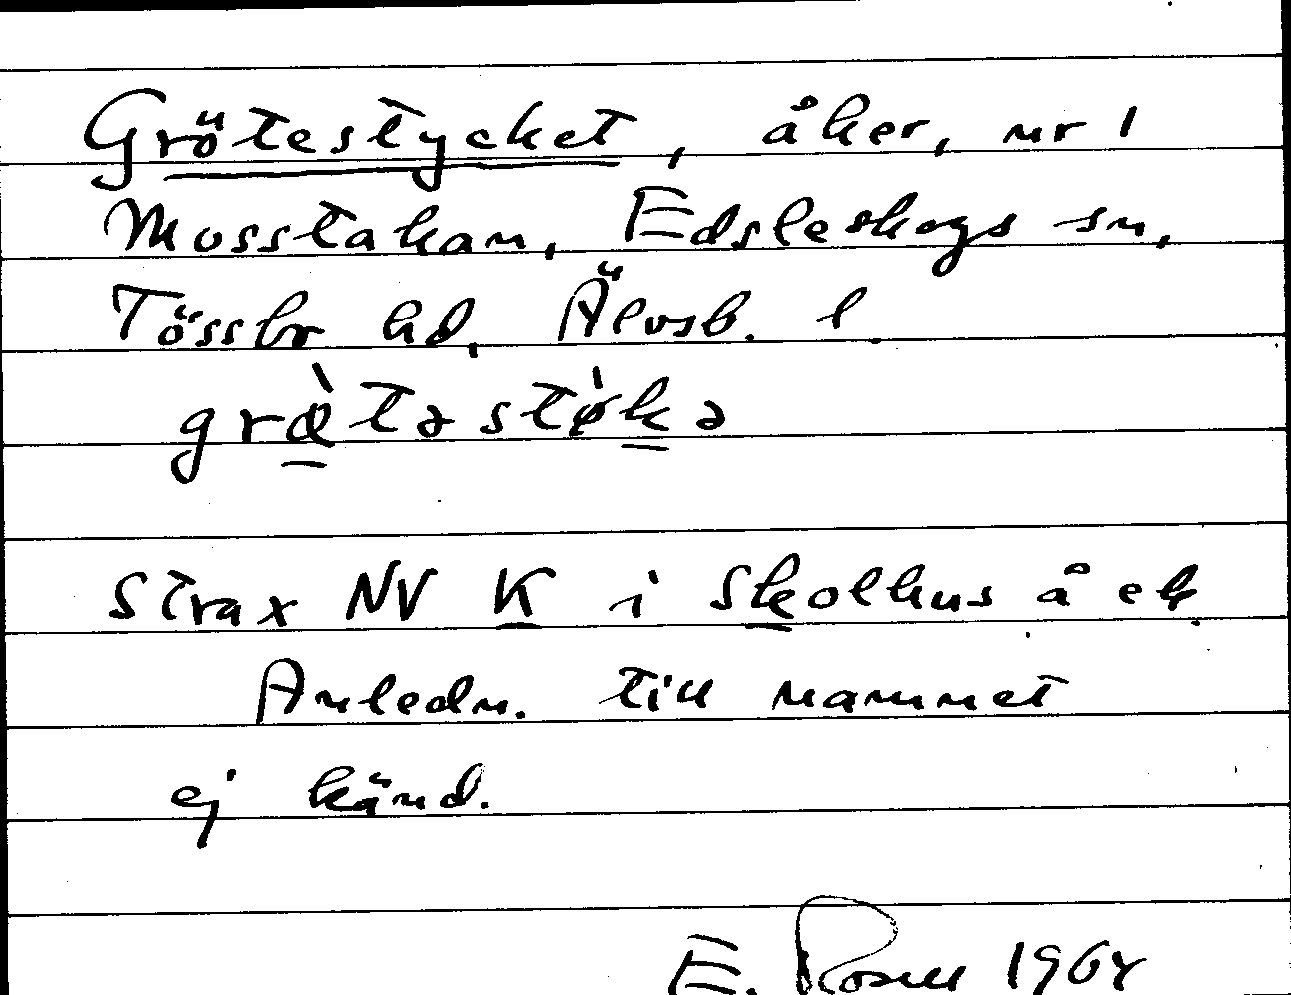 Grötestycket, åker, nr 1
Musstakan, Edsleskogs sn,
Tössbo hd, Älvsb. l.
grœ̀tə støkə
Strax NV K i Skolhus å ek.
Anledn. till namnet
ej känd.
E. Rosell 1964